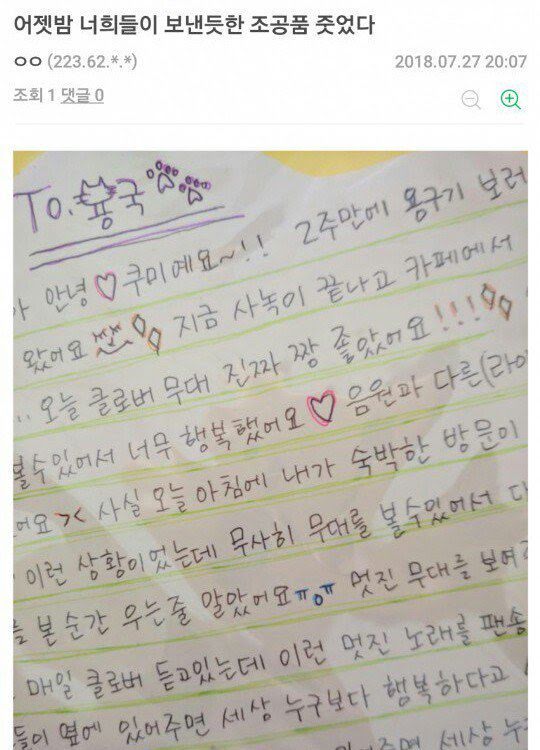 어젯밤 너희들이 보낸듯한 조공품 줏었다
ㅇㅇ (223.62.*.*) 2018.07.27 20:07
조회 1 댓글 0
To. 용국
안녕♡쿠미예요~!! 2주만에 용구기 보러
왔어요 지금 사녹이 끝나고 카페에서
.. 오늘 클로버 무대 진짜 짱 좋았어요!!!
볼수있어서 너무 행복했어요♡ 음원과 다른(라이
어요 >< 사실 오늘 아침에 내가 숙박한 방문이
이런 상황이었는데 무사히 무대를 볼수있어서 다
를 본 순간 우는줄 알았어요ㅠㅇㅠ 멋진 무대를 보여주
매일 클로버 듣고있는데 이런 멋진 노래를 팬송
들이 옆에 있어주면 세상 누구보다 행복하다고
주면 세상 누